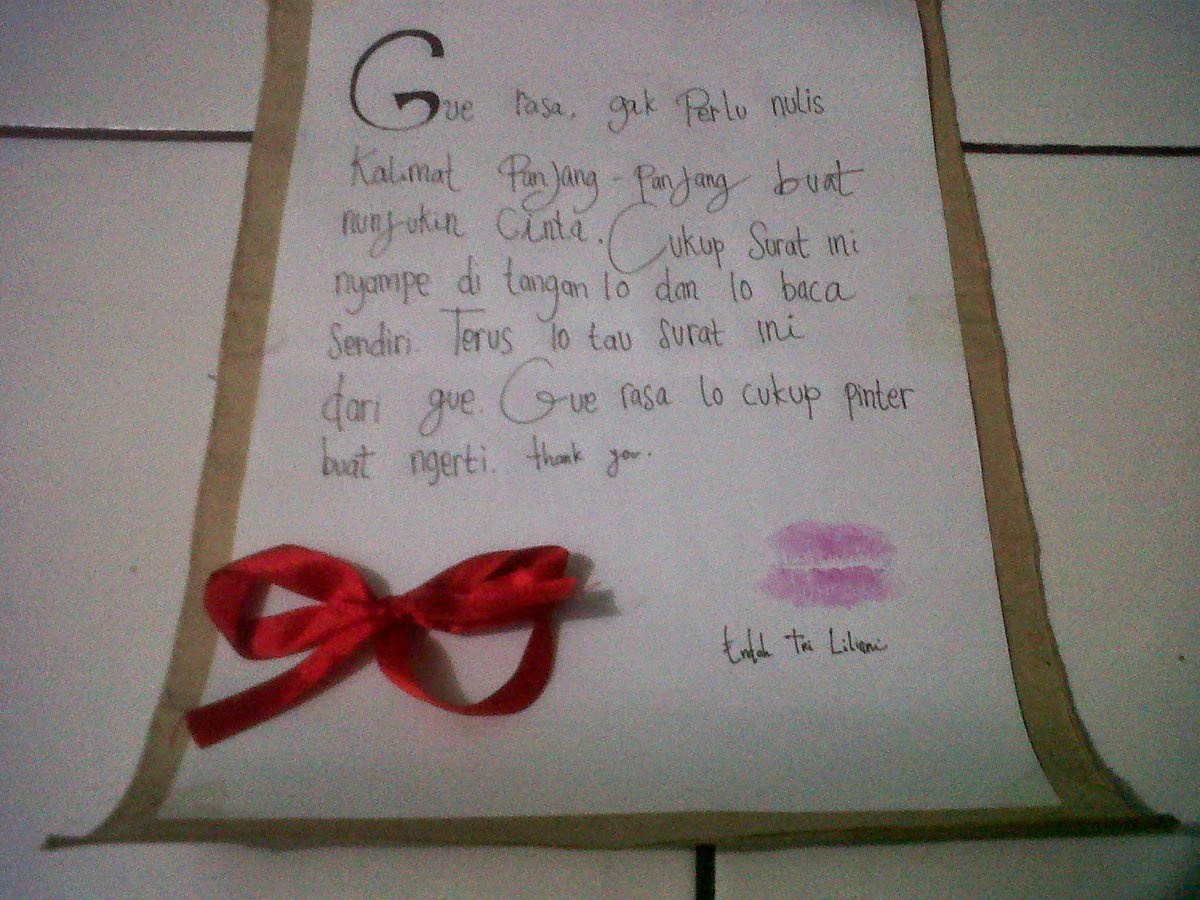 Gue rasa, gak Perlu nulis
Kalimat Panjang-Panjang buat
nunjukin Cinta. Cukup Surat ini
nyampe di tangan lo dan lo baca
Sendiri. Terus lo tau surat ini
dari gue. Gue rasa lo cukup pinter
buat ngerti. thank you.
Endah Tri Liliani